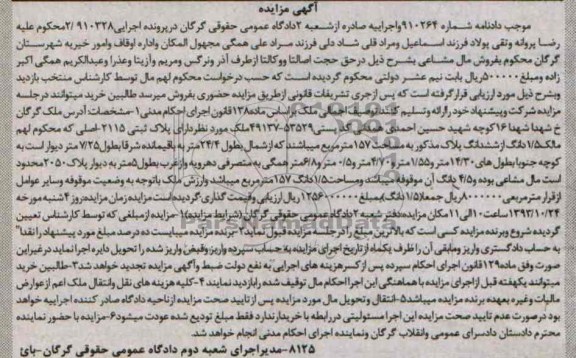 آگهی مزایده
موجب دادنامه شماره ۹۱۰۲۶۴ واجراییه صادره ازشعبه ۲دادگاه عمومی حقوقی گرگان درپرونده اجرایی۹۱۰۳۲۸/ ۲محکوم علیه
رضا پروانه وتقی پولاد فرزند اسماعیل ومراد قلی شاد دلی فرزند مراد علی همگی مجهول المکان واداره اوقاف وامور خیریه شهرستان
گرگان محکوم بفروش مال مشاعی بشرح ذیل درحق حجت اصالتا ووکالتا ازطرف آذر ونرگس ومریم وآزیتا وعذرا وعبدالکریم همگی اکبر
زاده ومبلغ۵۰۰۰۰۰ریال بابت نیم عشر دولتی محکوم گردیده است که حسب درخواست محکوم لهم مال توسط کارشناس منتخب بازدید
وبشرح ذیل مورد ارزیابی قرار گرفته است که پس ازجری تشریفات قانونی ازطریق مزایده حضوری بفروش میرسد طالبین خرید میتوانند درجلسه
مزایده شرکت وپیشنهاد خود راارائه وتسلیم کنند اوصاف اجمالی ملک براساس ماده۱۳۸قانون اجرای احکام مدنی۱-مشخصات آدرس ملک گرگان
خ شهدا شهدا ۱۶کوچه شهید حسین احمدی کد پستی۵۳۵۲۹-۴۹۱۳۷ملک مورد نظردارای پلاک ثبتی ۲۱۱۵-اصلی که محکوم لهم
مالک۱/۵دانگ ازششدانگ پلاک مذکور به مساحت ۱۵۷متر مربع میباشد که ازشمال بطول ۲۴/۴متر به باقیمانده شرقا بطول۷/۲۵ متر دیوار است به
کوچه جنوبا بطول های ۱۴/۳۰متر و۱/۵۵متر و۴/۷۰متر و۰/۵متر و۶/۸متر همگی به متصرفی دهرویه وازغرب بطول۵متر به دیوار پلاک ۲۰۵۰محدود
است مال مشاعی بوده و۴/۵ دانگ آن موقوفه میباشد ومساحت۱/۵دانگ ۱۵۷متر مربع میباشد وارزش ملک باتوجه به وضعیت موقوفه وسایر عوامل
ازقرار مترمربعی۸۰۰۰۰۰۰ریال جمعا(۱/۵دانگ)بمبلغ۱۲۵۶۰۰۰۰۰۰ ریال ارزیابی وقیمت گذاری گردیده است مزایده زمان مزایده:روز ۴شنبه مورخه
۱۳۹۳/۱۰/۲۴ساعت ۱۰الی ۱۱مکان مزایده:دفتر شعبه ۲دادگاه عمومی حقوقی گرگان (شرایط مزایده)۱-مزایده ازمبلغی که توسط کارشناس تعیین
گردیده شروع وبرنده مزایده کسی است که بالاترین مبلغ را درجلسه مزایده قبول نماید۲-برنده مزایده میبایست ده درصد مبلغ مورد پیشنهاد را نقدا"
به حساب دادگستری واریز ومابقی آن را ظرف یکماه از تاریخ اجرای مزایده به حساب سپرده واریز وفیش واریز شده را تحویل دایره اجرا نماید درغیراین
صورت وفق ماده۱۲۹قانون اجرای احکام سپرده پس از کسرهزینه های اجرایی به نفع دولت ضبط وآگهی مزایده تجدید خواهد شد۳-طالبین خرید
میتوانند یکهفته قبل ازاجرای مزایده با هماهنگی این اجرااحکام مال توقیف شده رابازدید نمایند۴-کلیه هزینه های نقل وانتقال ملک اعم ازعوارض
مالیات وغیره بعهده برنده مزایده میباشد۵-انتقال وتحویل مال مورد مزایده پس ازتایید صحت مزایده ازناحیه دادگاه صادر کننده اجراییه خواهد
بود درصورت عدم تایید صحت مزایده این اجرا مسئولیتی دررابطه با خریدارندارد فقط مبلغ تودیع شده عودت میشود۶-مزایده با حضور نماینده
محترم دادستان دادسرای عمومی وانقلاب گرگان ونماینده اجرای احکام مدنی انجام خواهد شد.
۸۱۲۵-مدیراجرای شعبه دوم دادگاه عمومی حقوقی گرگان-بائ